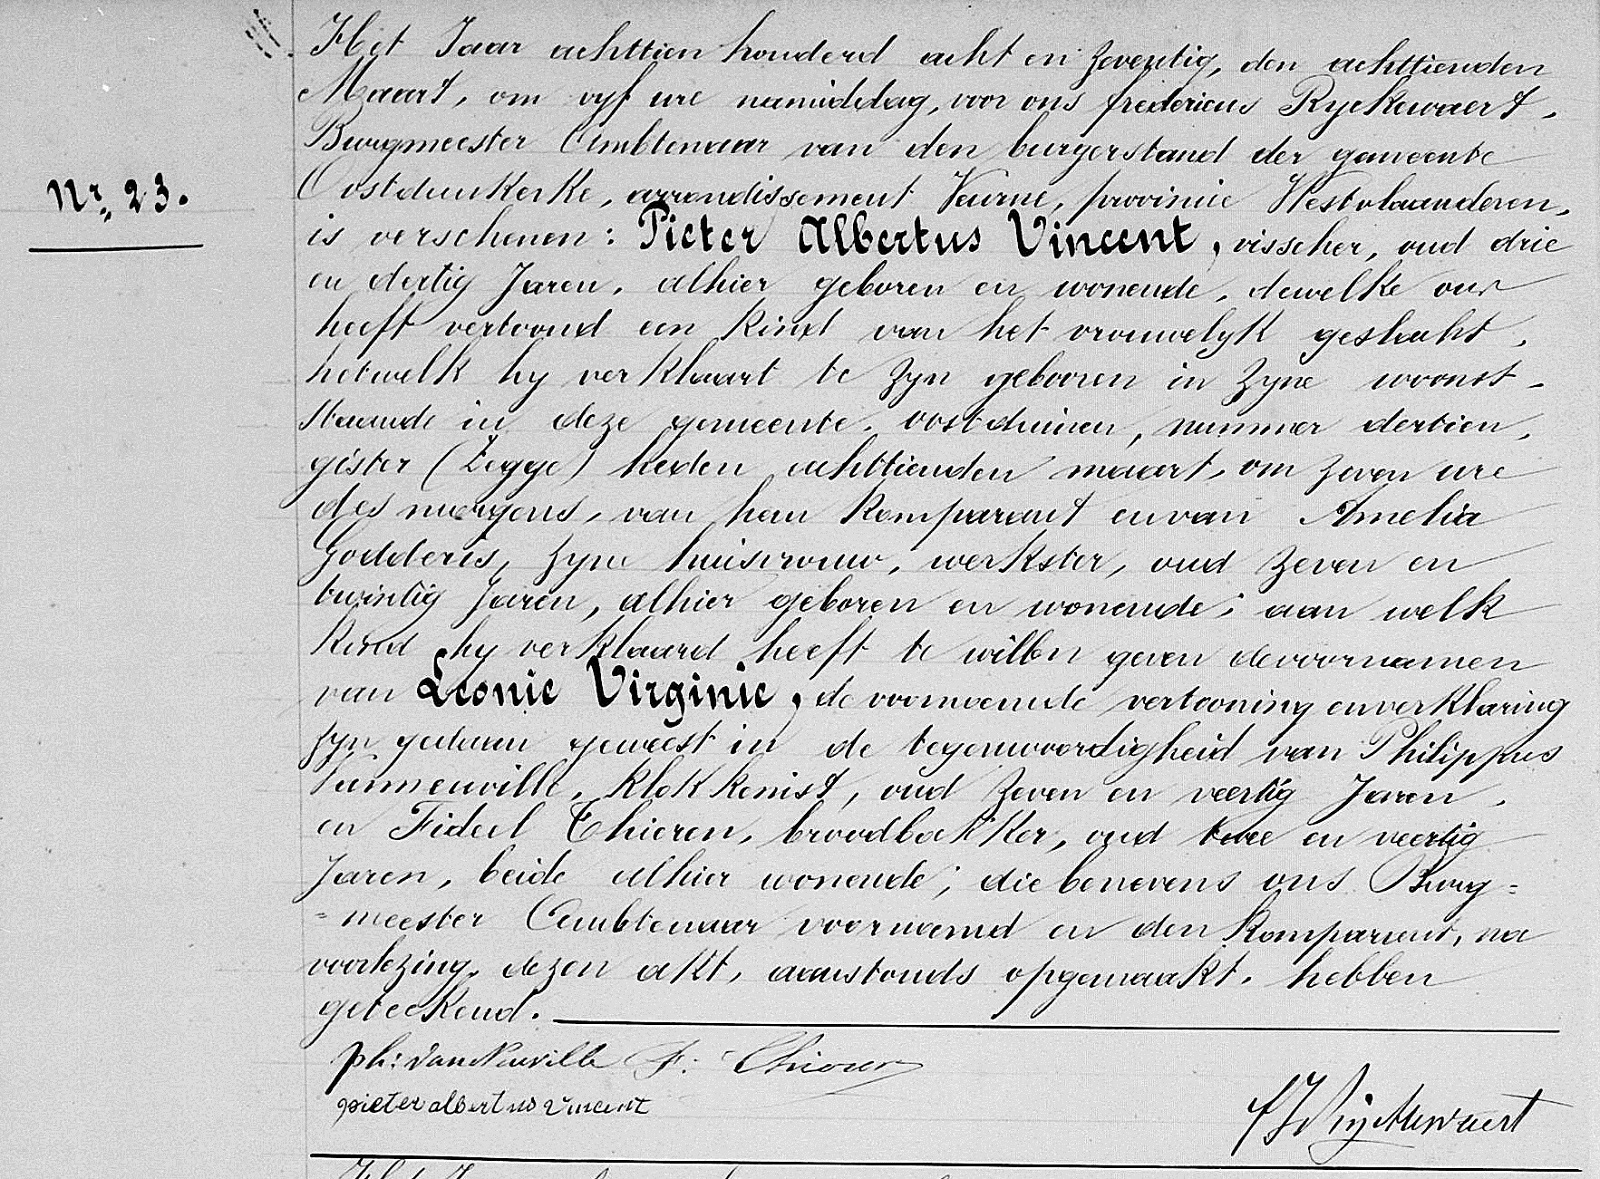 Het Jaar achttien honderd acht en zeventig, den achttienden
Maart, om vyf ure namiddag, voor ons fredericus Ryckewaert,
Burgmeester Ambtenaar van den burgerstand der gemeente
Nr. 23.
Oostduinkerke, arrondissement Veurne, provincie Westvlaanderen,
is verschenen: Pieter Albertus Vincent, visscher, oud drie
en dertig Jaren, alhier geboren en wonende, dewelke ons
heeft vertoond een kind van het vrouwelyk geslacht,
hetwelk hy verklaart te zyn gebooren in zyne woonst,
staande in deze gemeente, oostduinen, nummer dertien,
gister (Zegge) heden achttienden maart, om zeven ure
des morgens, van hem komparant en van Amelia
Godderis, zyne huisvrouw, werkster, oud zeven en
twintig Jaren, alhier geboren en wonende; aan welk
kind hy verklaard heeft te willen geven de voornamen
van Leonie Virginie, de voornoemde vertooning en verklaring
zyn gedaan geweest in de tegenwoordigheid van Philippus
Vanneuville, klokkenist, oud zeven en veertig Jaren,
en Fideel Thieren, broodbakker, oud twee en veertig
Jaren, beide alhier wonende; die benevens ons Burg=
=meester Ambtenaar voornoemd en den komparant, na
voorlezing dezen akt, aanstonds opgemaakt, hebben
geteekend.
ph: Van Neuville F: Thieren
pieter albertus vincent
Ryckewaert
Het Jaar